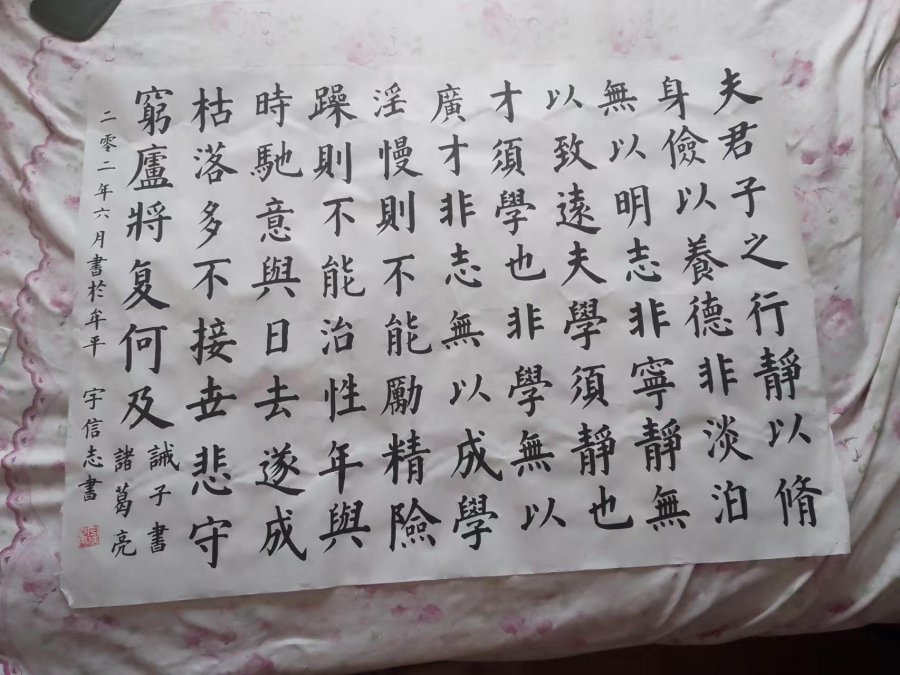 夫君子之行靜以脩
身儉以養德非淡泊
無以明志非寧靜無
以致遠夫學須靜也
才須學也非學無以
廣才非志無以成學
淫慢則不能勵精險
躁則不能治性年與
時馳意與日去遂成
枯落多不接世悲守
窮廬將复何及
誡子書
諸葛亮
二零二年六月書於牟平 宇信志書